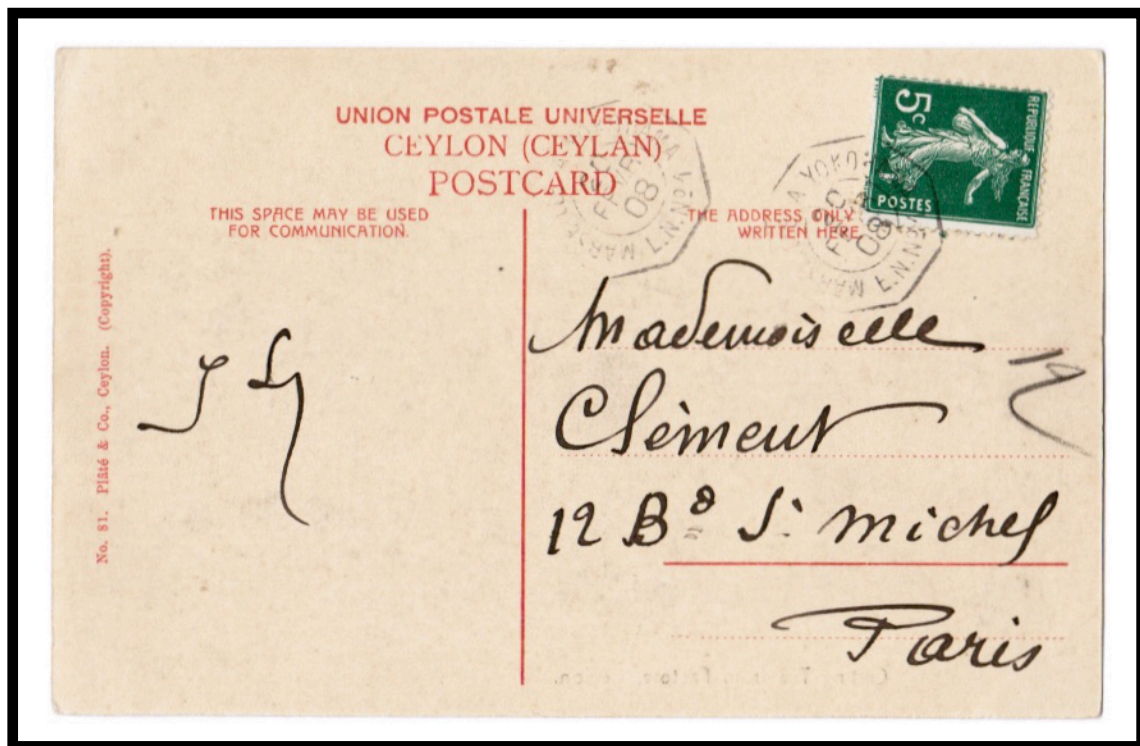 UNION POSTALE UNIVERSELLE
CEYLON (CEYLAN)
POSTCARD
THIS SPACE MAY BE USED
FOR COMMUNICATION.
THE ADDRESS ONLY
WRITTEN HERE
No. 81. Plâté & Co., Ceylon. (Copyright).
5c
REPUBLIQUE FRANÇAISE
POSTES
FEVR
08
L.N.N°
YOKO
08
L.N.N°
Mademoiselle
Clèment
12 Bd St. Michel
Paris